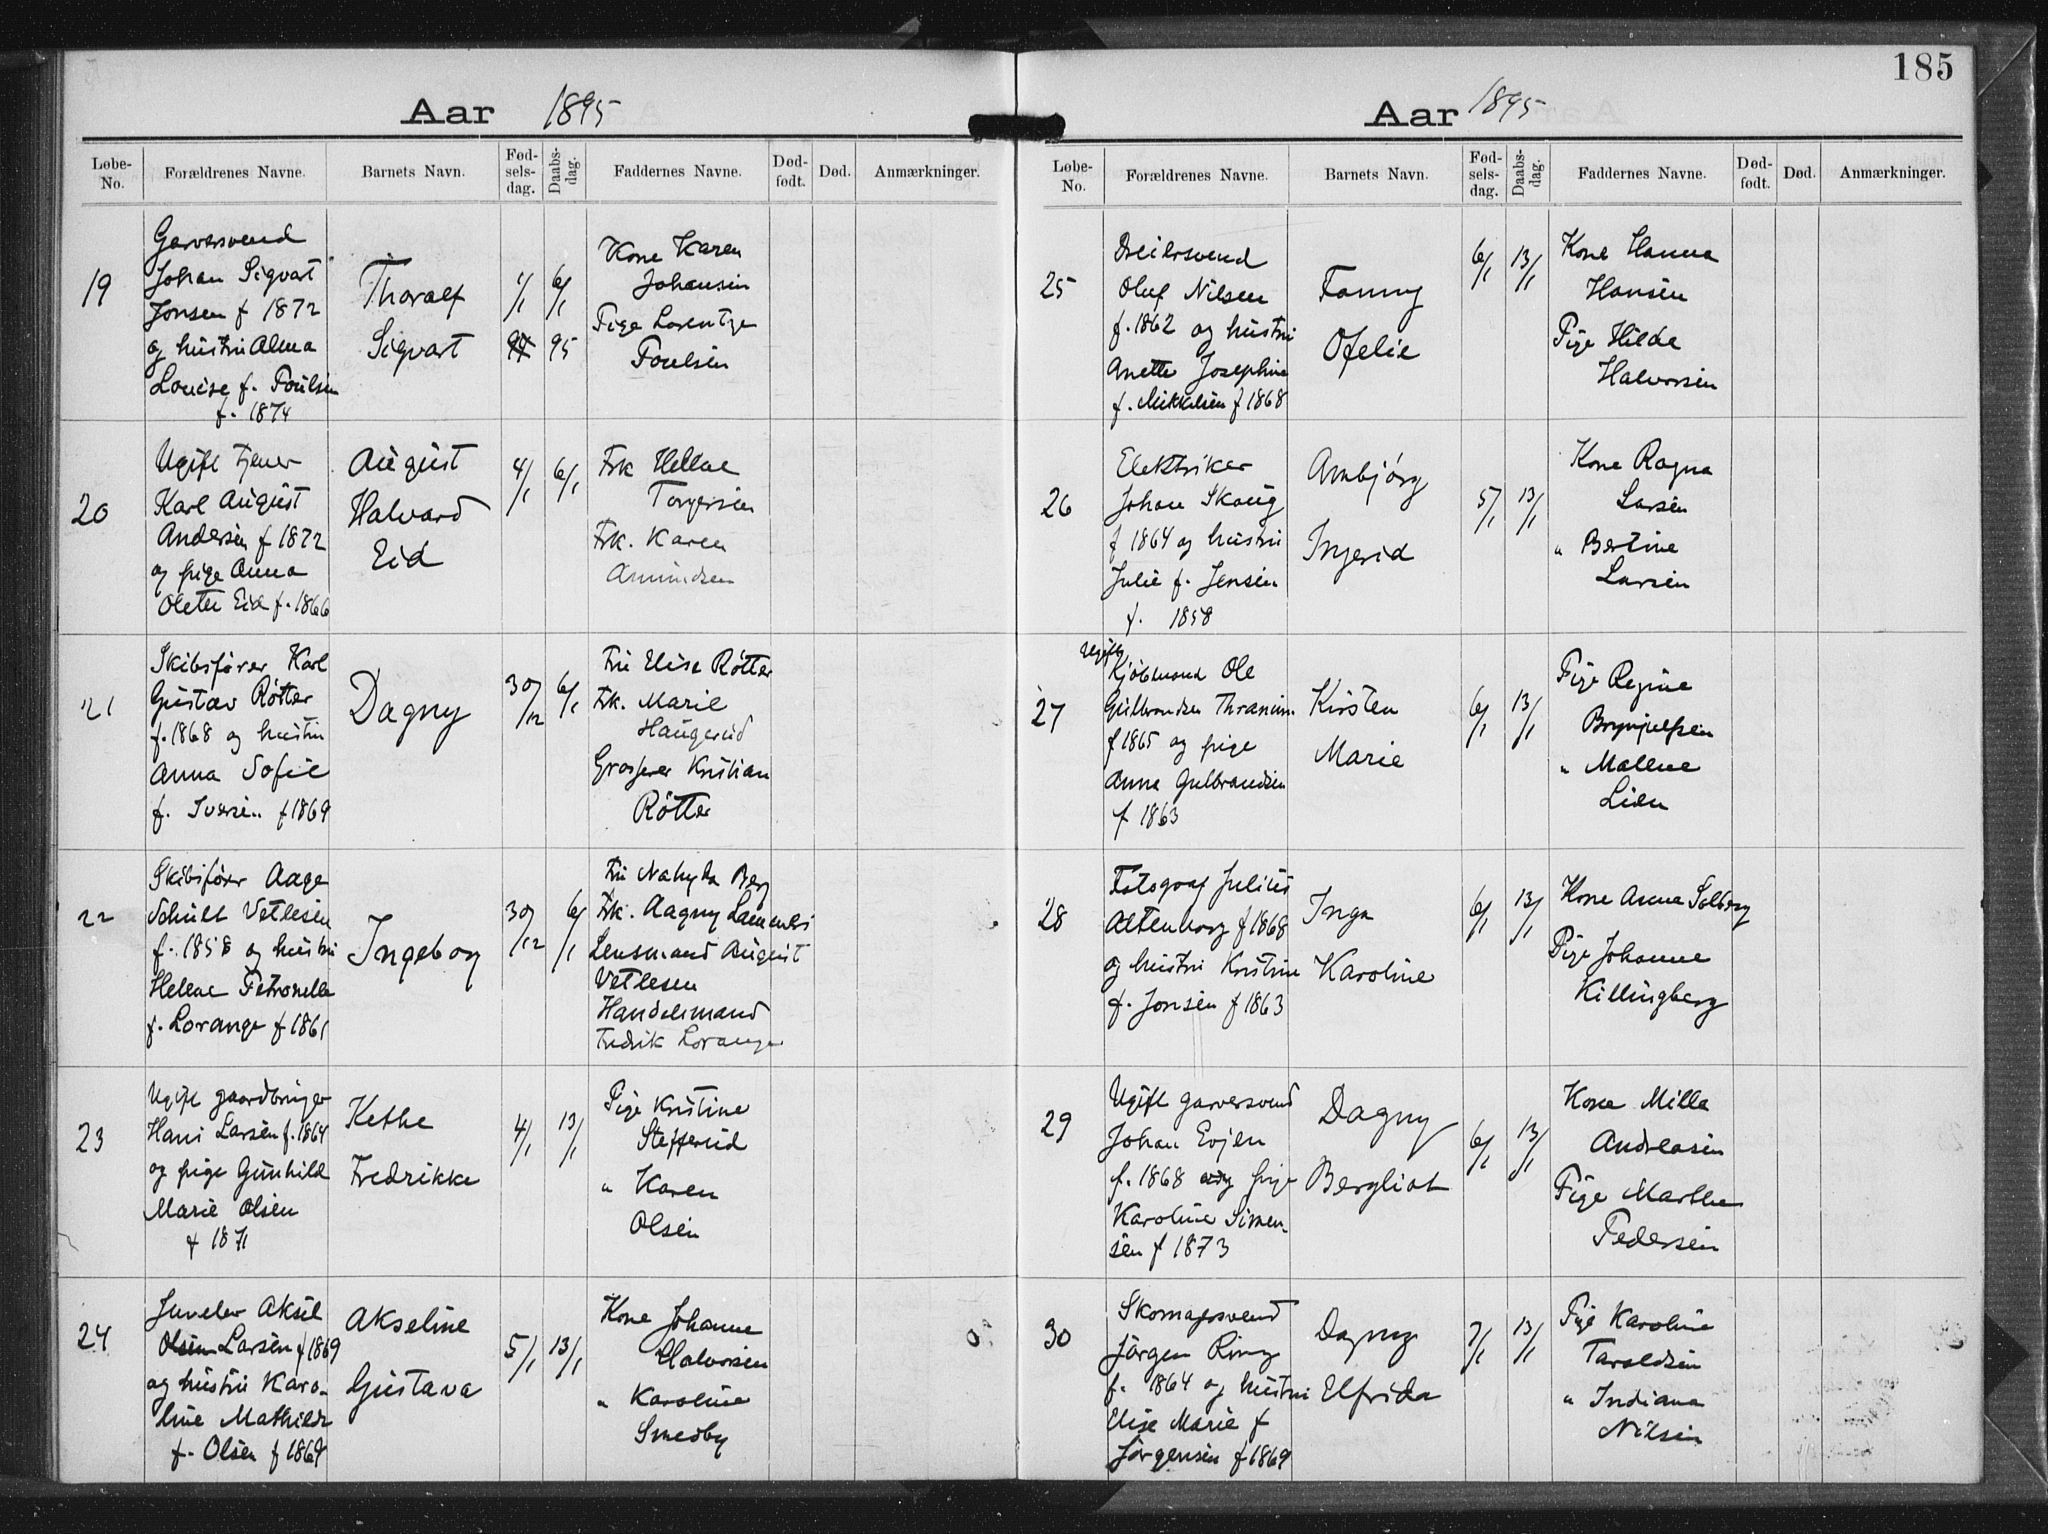 185
Aar 1895
Løbe-No. Forældrenes Navne. Barnets Navn. Fødselsdag. Daabsdag. Faddernes Navne. Dødfødt. Død. Anmærkninger.
19
Garversvend
Johan Sigvart
Jonsen f 1872
og hustru Alma
Louise f. Poulsen
f. 1874
Thoralf
Sigvart
1/1
6/1
95
Kone Karen
Johansen
Pige Lorentze
Poulsen
20
Ugift tjener
Karl August
Andersen f 1872
og pige Anna
Olette Eid f. 1866
August
Halvard
Eid
4/1
6/1
Frk Helene
Torgersen
Frk. Karen
Amundsen
21
Skibsfører Karl
Gustav Røtter
f. 1868 og hustru
Anna Sofie
f. Iversen f 1869
Dagny
30/12
6/1
Fru Elise Røtter
Frk. Marie
Haugerud
Grosserer Kristian
Røtter
22
Skibsfører Aage
Schult Vetlesen
f. 1858 og hustru
Helene Petronelle
f. Lorange f 1861
Ingeborg
30/12
6/1
Fru Berg
Frk. Aagny
Lensmand August
Vetlesen
Handelsmand
Fredrik Lorange
23
Ugift gaardbruger
Hans Larsen f. 1864
og pige Gunhild
Marie Olsen
f 1871
Kethe
Fredrikke
4/1
13/1
Pige Kristine
Stefferud
" Karen
Olsen
24
Juveler Aksel
Olsen Larsen f 1869
og hustru Karo-
line Mathilde
f. Olsen f 1869
Akseline
Gustava
5/1
13/1
Kone Johanne
Halvorsen
" Karoline
Smedby
Aar 1895
Løbe-No. Forældrenes Navne. Barnets Navn. Fødselsdag. Daabsdag. Faddernes Navne. Dødfødt. Død. Anmærkninger.
25
Dreiersvend
Oluf Nilsen
f. 1862 og hustru
Anette Josephine
f. Mikkelsen f 1868
Fanny
Ofelie
6/1
13/1
Kone Hanna
Hansen
Pige Hilda
Halvorsen
26
Elektriker
Johan Skaug
f 1864 og hustru
Julie f. Jensen
f. 1858
Arnbjørg
Ingerid
5/1
13/1
Kone Ragna
Larsen
" Bertine
Larsen
27
ugift
Kjøbmand Ole
Gulbrandsen
f 1865 og pige
Anna Gulbrandsen
f 1863
Kirsten
Marie
6/1
13/1
Pige Regine
Brynjulfsen
" Malene
Lien
28
Fotograf Julius
Altenborg f 1868
og hustru Kristine
f. Jonsen f 1863
Inga
Karoline
6/1
13/1
Kone Anna Solberg
Pige Johanne
Killingberg
29
Ugift garversvend
Johan Evjen
f. 1868 og pige
Karoline Simen-
sen f 1873
Dagny
Bergliot
6/1
13/1
Kone Milla
Andreasen
Pige Marthe
Pedersen
30
Skomagersvend
Jørgen Ring
f. 1864 og hustru
Elise Marie f
Jørgensen f 1869
Dagny
Elfrida
7/1
13/1
Pige Karoline
Taraldsen
" Indiana
Nilsen